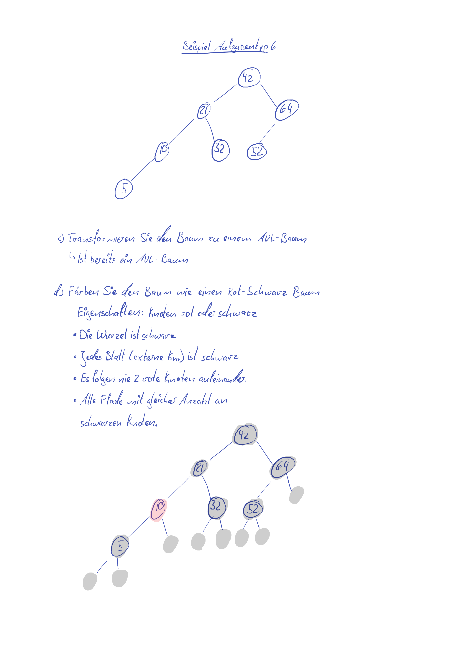 Beispiel Aufgabentyp 6
42
21
64
10
32
52
5
c) Transformieren Sie den Baum zu einem AVL-Baum
↳ Ist bereits ein AVL-Baum
d) Färben Sie den Baum wie einen Rot-Schwarz Baum
Eigenschaften: Knoten rot oder schwarz
• Die Wurzel ist schwarz
• Jedes Blatt (externe Kn.) ist schwarz
• Es folgen nie 2 rote Knoten aufeinander
• Alle Pfade mit gleicher Anzahl an
schwarzen Knoten.
42
21
64
10
32
52
5